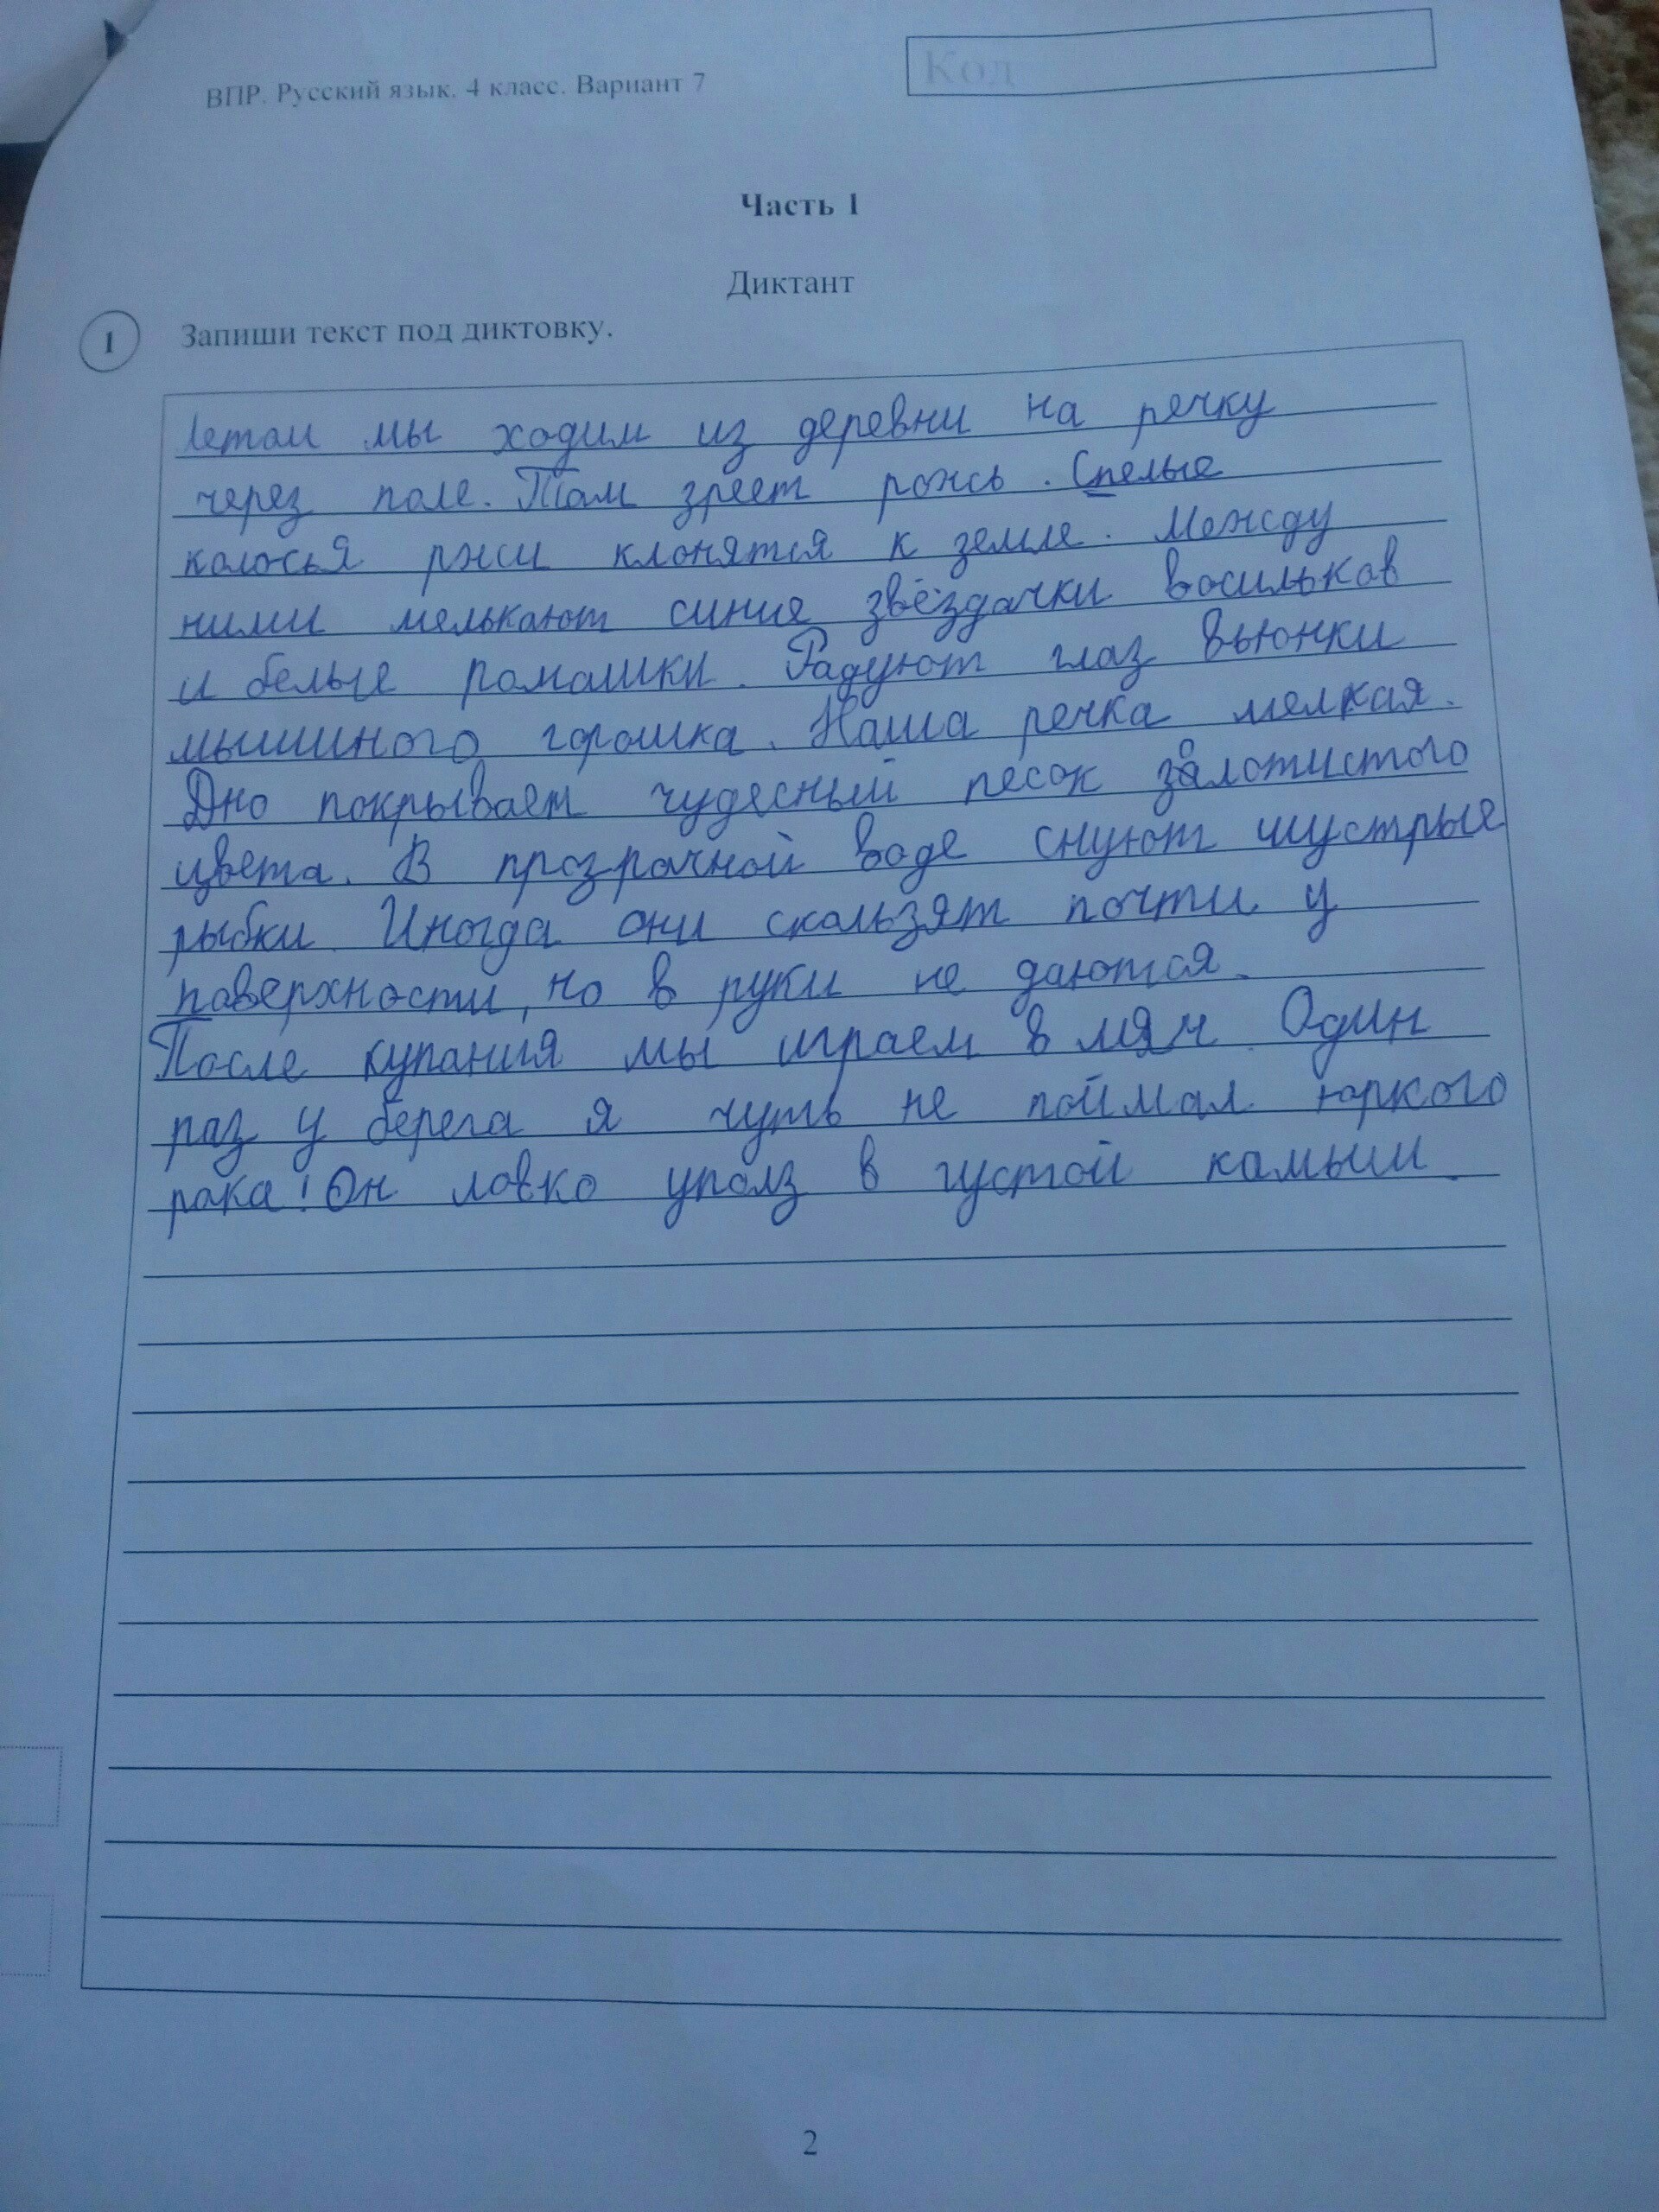 ВПР. Русский язык. 4 класс. Вариант 7
Код
Часть 1
Диктант
1 Запиши текст под диктовку.
Летом мы ходим из деревни на речку
через поле. Там зреет рожь. Спелые
колосья ржи клонятся к земле. Между
ними мелькают синие звёздочки васильков
и белые ромашки. Радуют глаз вьюнки
мышиного горошка. Наша речка мелкая.
Дно покрывает чудесный песок золотистого
цвета. В прозрачной воде снуют шустрые
рыбки. Иногда они скользят почти у
поверхности, но в руки не даются.
После купания мы играем в мяч. Один
раз у берега я чуть не поймал юркого
рака! Он ловко уполз в густой камыш.
2